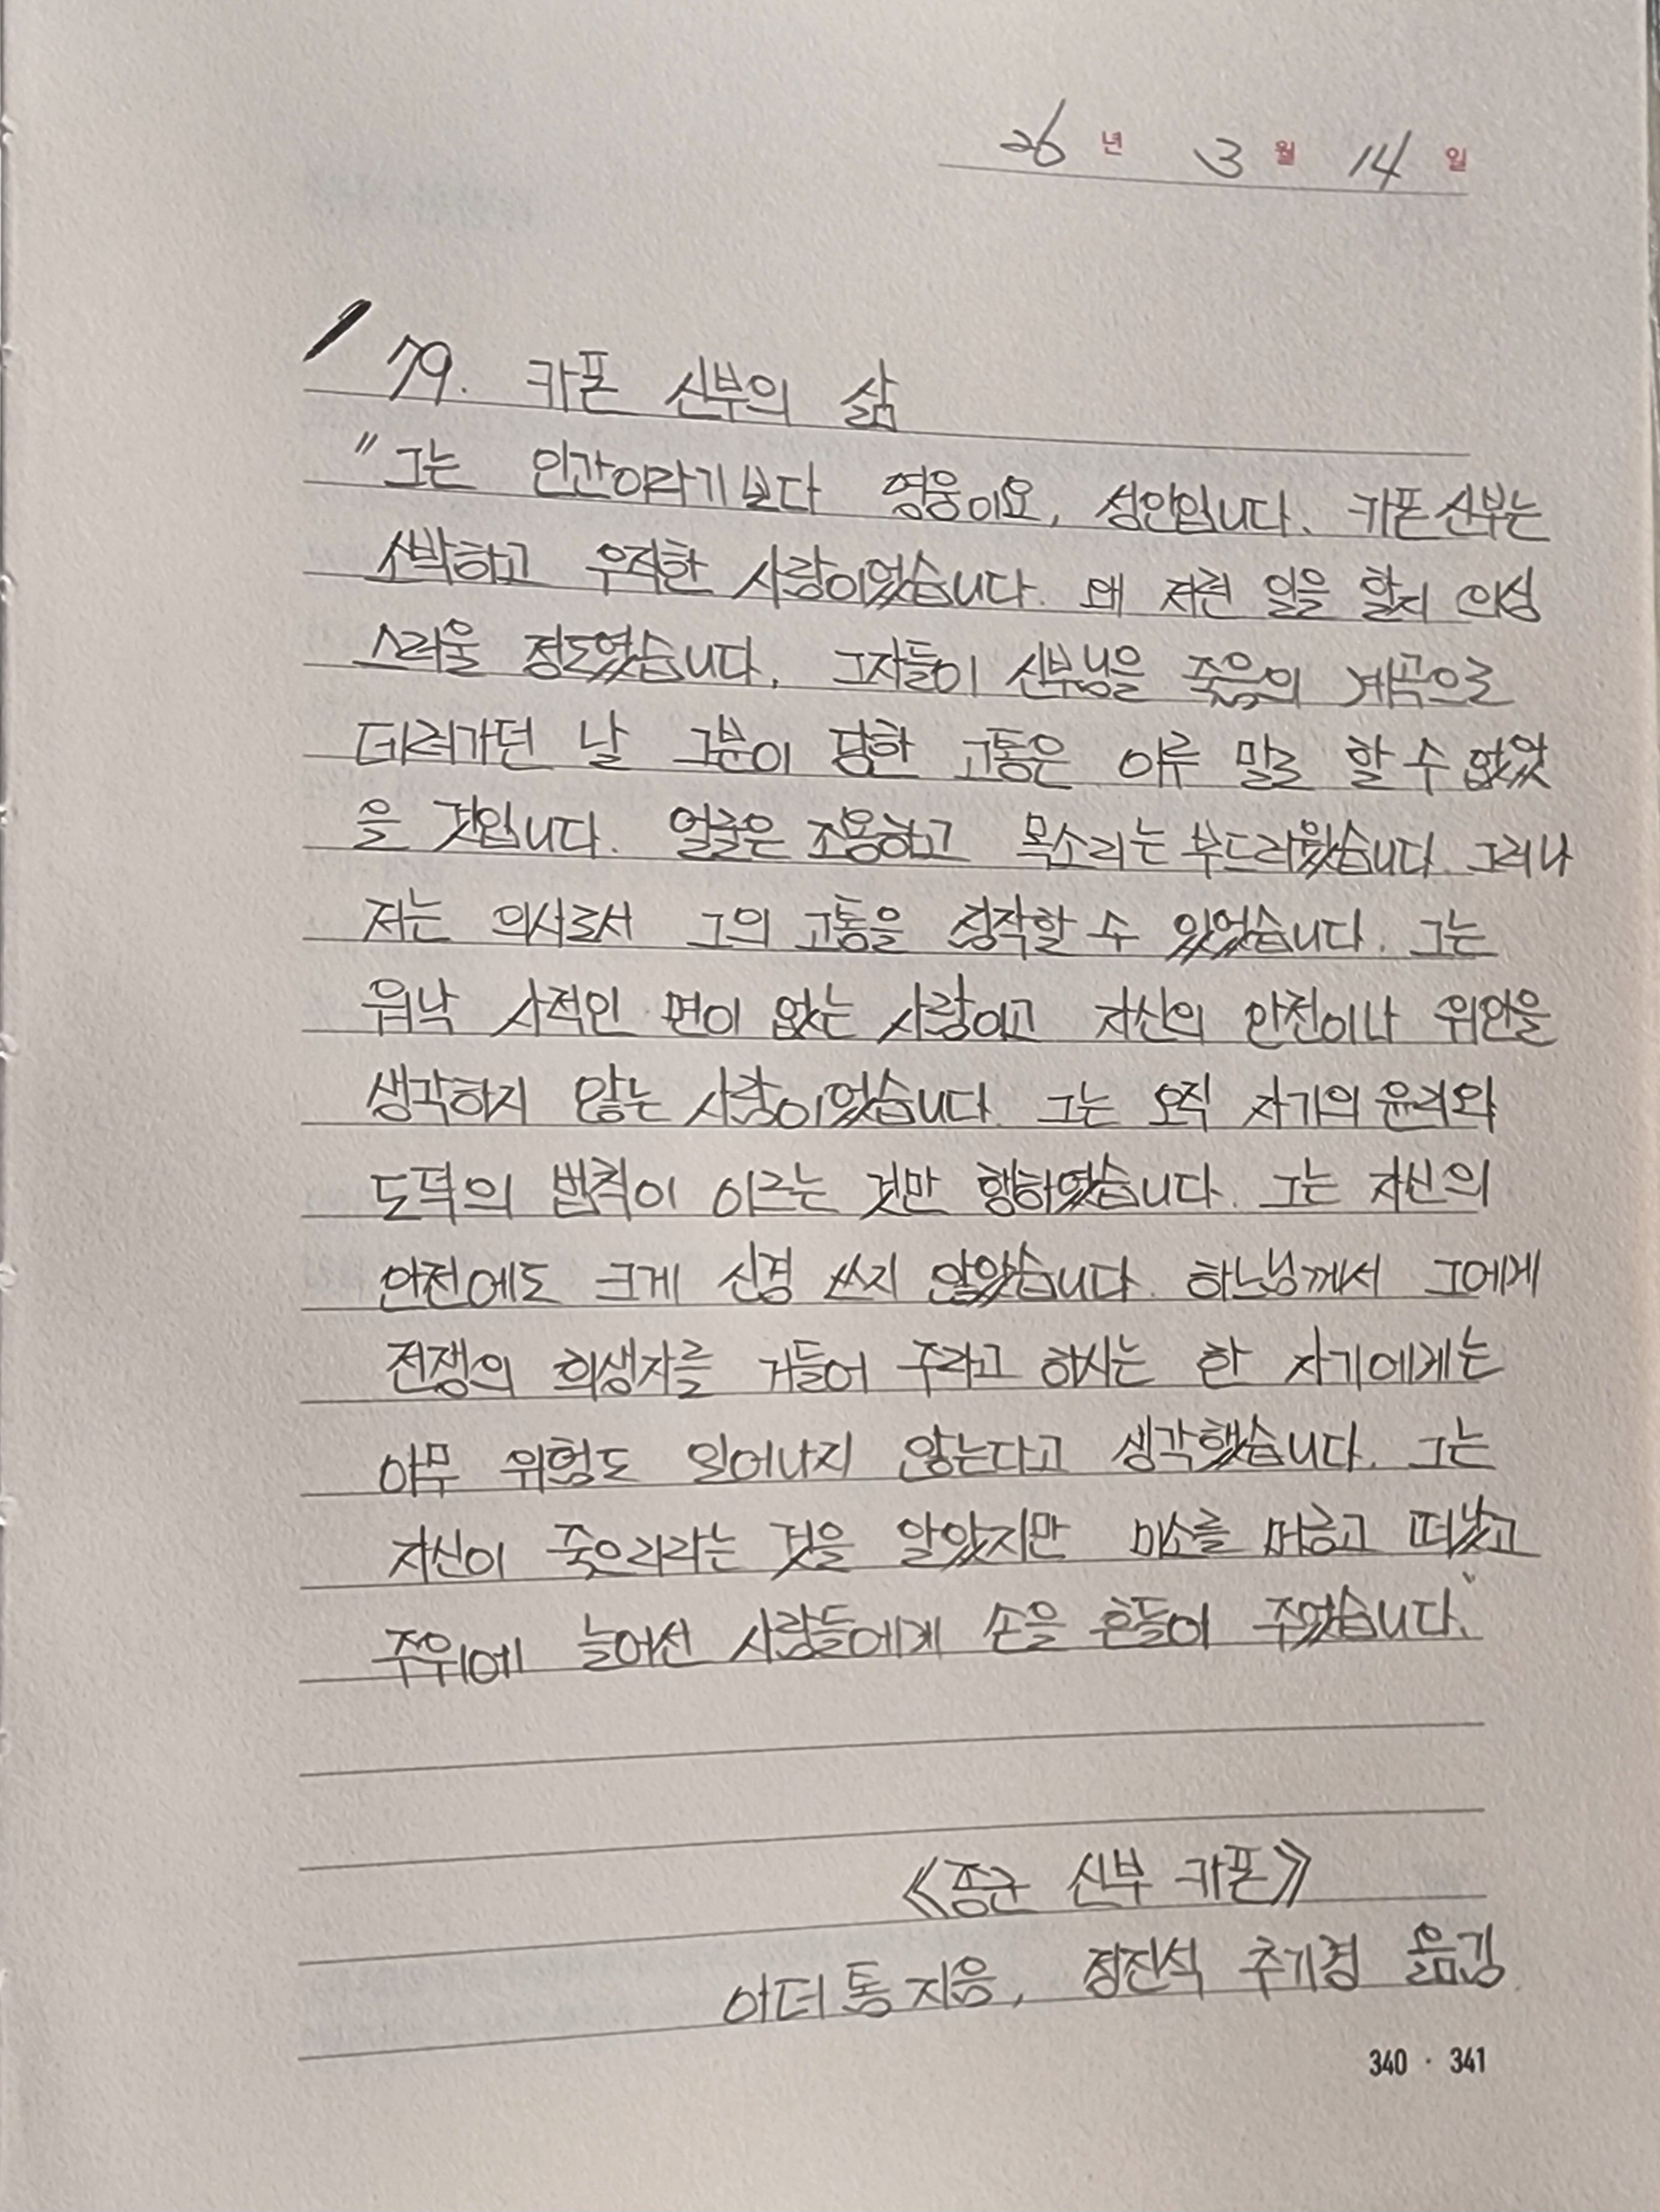 26 년 3 월 14 일
79. 카폰 신부의 삶
"그는 인간이라기보다 영웅이요, 성인입니다. 카폰 신부는
소박하고 우직한 사람이었습니다. 왜 저런 일을 할지 의심
스러울 정도였습니다. 그자들이 신부님을 죽음의 계곡으로
데려가던 날 그분이 당한 고통은 이루 말로 할 수 없었
을 것입니다. 얼굴은 조용하고 목소리는 부드러웠습니다. 그러나
저는 의사로서 그의 고통을 짐작할 수 있었습니다. 그는
워낙 사적인 면이 없는 사람이고 자신의 안전이나 위안을
생각하지 않는 사람이었습니다. 그는 오직 자기의 윤리와
도덕의 법칙이 이르는 것만 행하였습니다. 그는 자신의
안전에도 크게 신경 쓰지 않았습니다. 하느님께서 그에게
전쟁의 희생자를 거들어 주라고 하시는 한 자기에게는
아무 위험도 일어나지 않는다고 생각했습니다. 그는
자신이 죽으리라는 것을 알았지만 미소를 머금고 떠났고
주위에 늘어선 사람들에게 손을 흔들어 주었습니다."
《종군 신부 카폰》
아더 통 지음, 정진석 추기경 옮김.
340 · 341